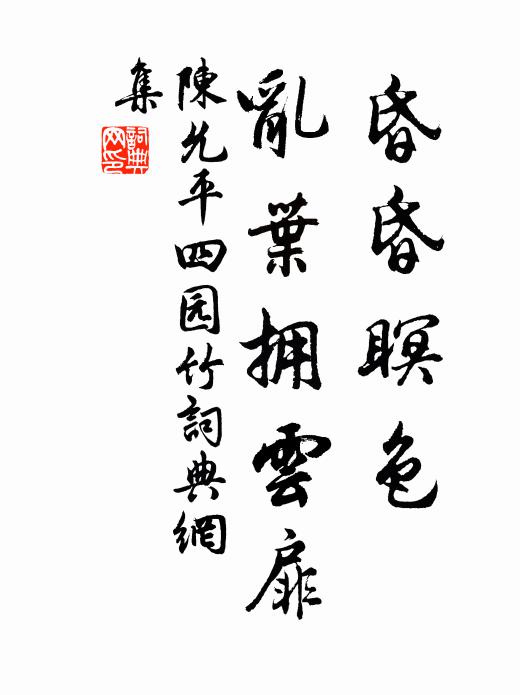 昏昏瞑色
亂葉拥雲扉
陳允平四园竹詞典網
集
詞典網印